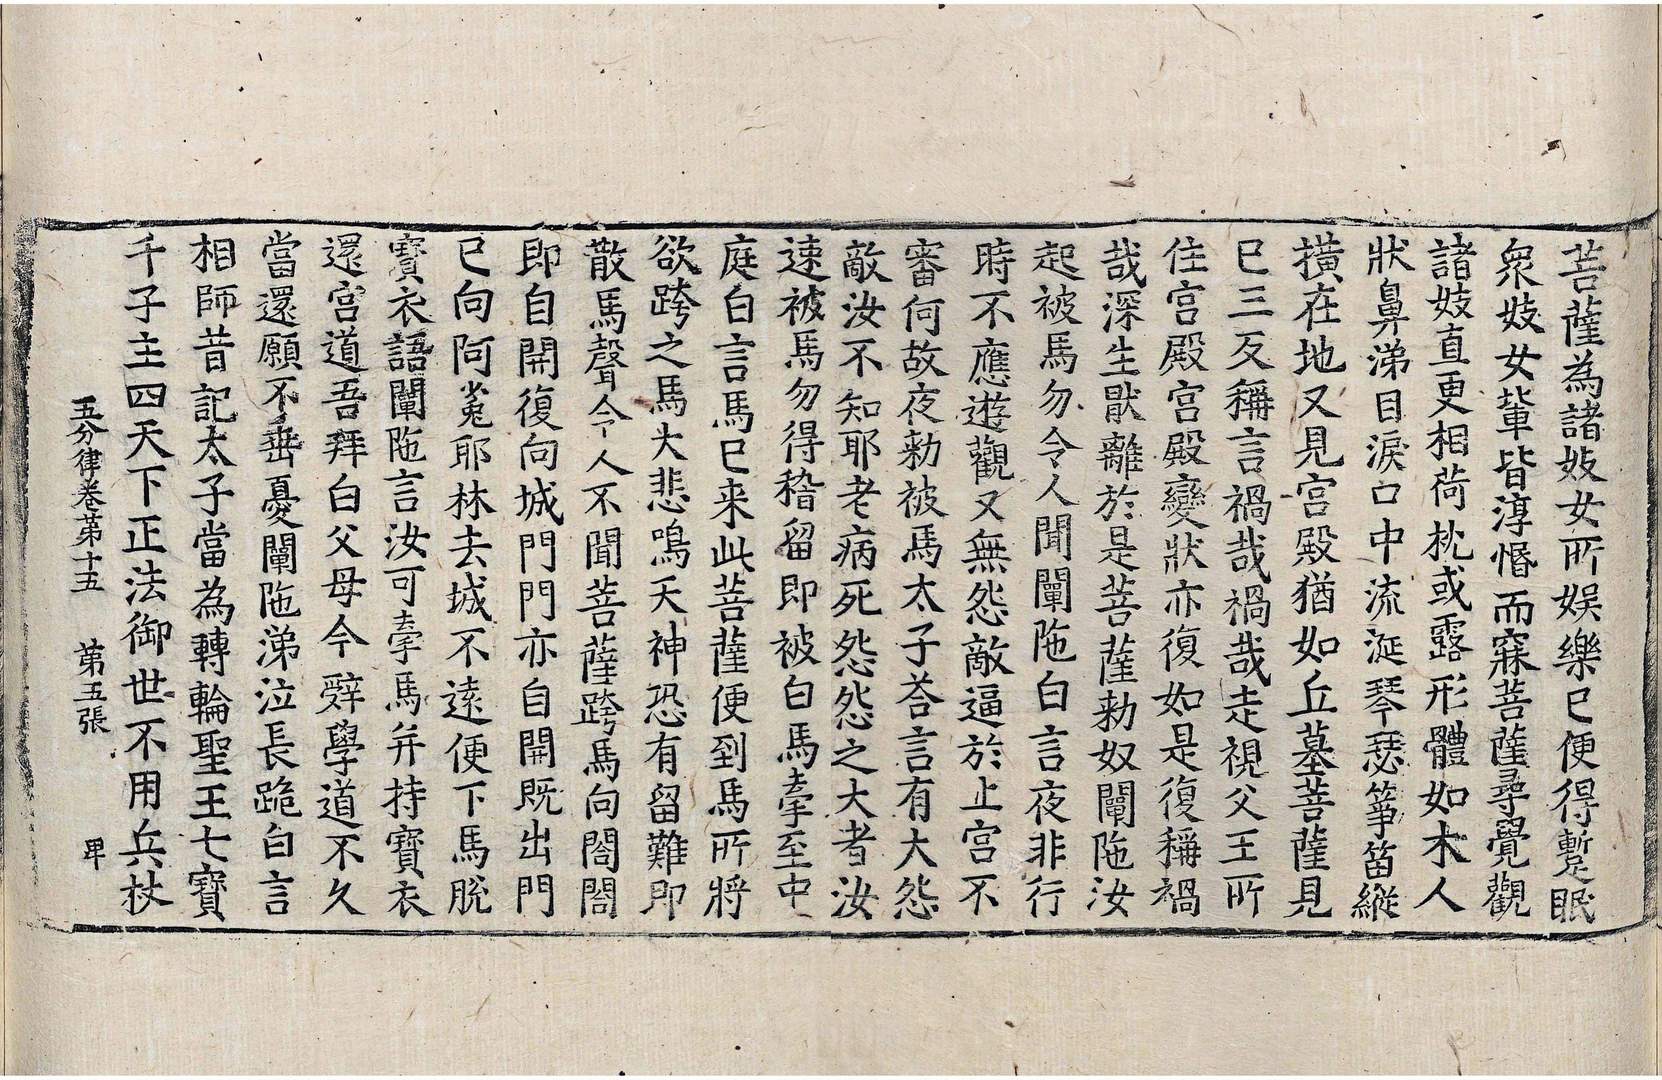 菩薩為諸妓女所娯樂已便得蹔眠
衆妓女輩皆淳惛而寐菩薩尋覺觀
諸妓直更相荷枕或露形體如木人
狀鼻涕目淚口中流涎琴瑟箏笛縱
撗在地又見宮殿猶如丘墓菩薩見
已三反稱言禍哉禍哉走視父王所
住宮殿宮殿變狀亦復如是復稱禍
哉深生猒離於是菩薩勑奴闡陁汝
起被馬勿令人聞闡陁白言夜非行
時不應遊觀又無怨敵逼於止宮不
審何故夜勑被馬太子荅言有大怨
敵汝不知耶老病死怨怨之大者汝
速被馬勿得稽留即被白馬牽至中
庭白言馬已来此菩薩便到馬所將
欲跨之馬大悲鳴天神恐有留難即
散馬聲令人不聞菩薩跨馬向閤閤
即自開復向城門門亦自開既出門
已向阿㝹耶林去城不遠便下馬脫
寶衣語闡陁言汝可牽馬并持寶衣
還宮道吾拜白父母今辤學道不久
當還願不垂憂闡陁涕泣長跪白言
相師昔記太子當為轉輪聖王七寶
千子主四天下正法御世不用兵杖
五分律卷第十五　第五張